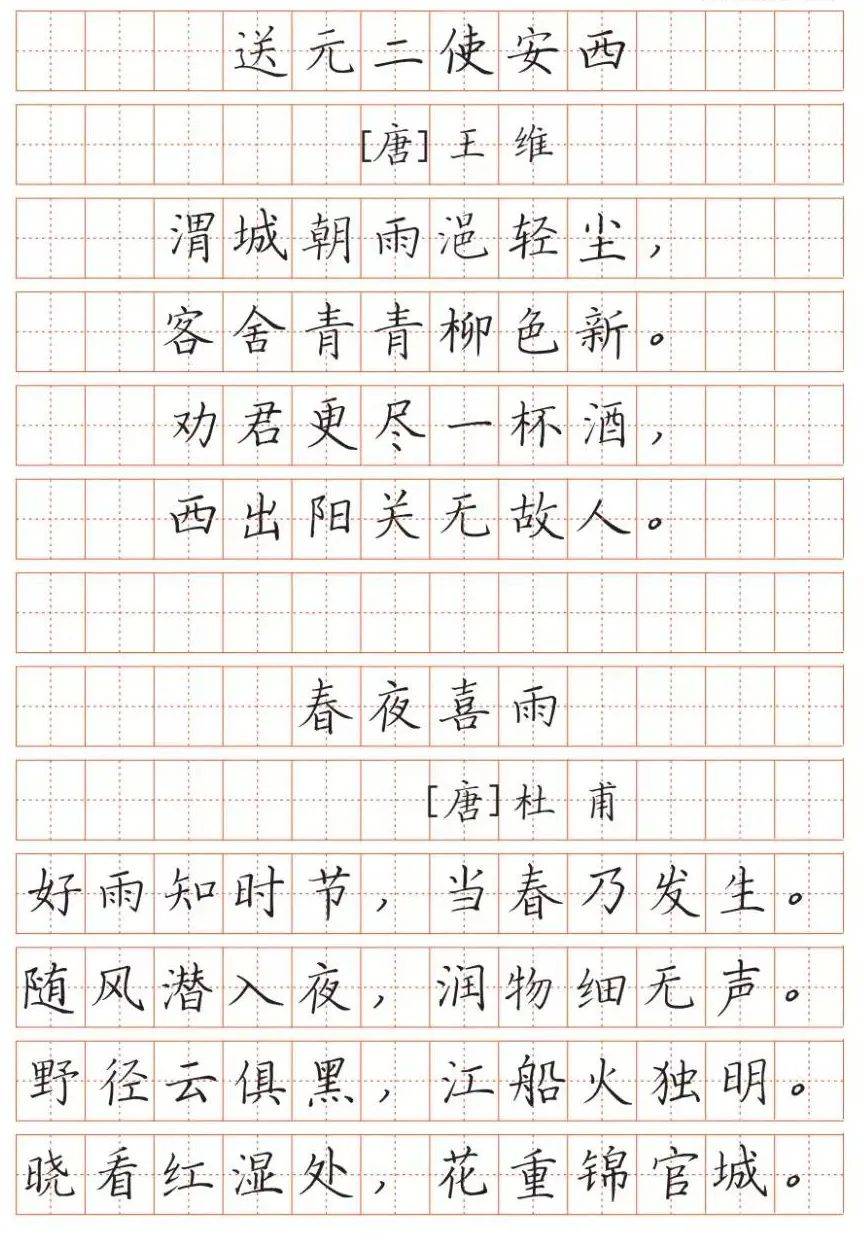 送元二使安西
[唐]王维
渭城朝雨浥轻尘，
客舍青青柳色新。
劝君更尽一杯酒，
西出阳关无故人。
春夜喜雨
[唐]杜甫
好雨知时节，当春乃发生。
随风潜入夜，润物细无声。
野径云俱黑，江船火独明。
晓看红湿处，花重锦官城。